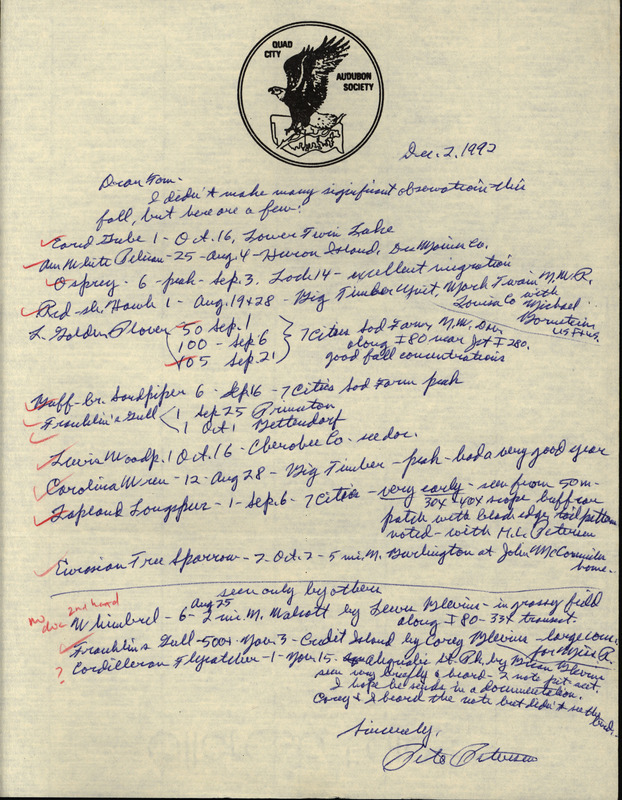 QUAD CITY
AUDUBON SOCIETY
Dec. 2, 1992
Dear Tom-
I didn't make many significant observations this
fall, but here are a few:
Eared Grebe 1 - Oct. 16, Lower Twin Lake
Am White Pelican - 25 - Aug. 4 - Huron Island, Des Moines Co.
Osprey - 6 - peak - Sep. 3, Lock 14 - excellent migration
Red-sh. Hawk 1 - Aug. 19 & 28 - Big Timber Unit, Mark Twain N.W.R.
Louisa Co with Michael
Bornstein
US F+WS.
L. Golden Plover 50 Sep. 1
100 - Sep 6
105 Sep. 21
7 Cities Sod Farm, N.W. Dav.
along I 80 near Jct I 280.
good fall concentrations
Buff-br. Sandpiper 6 - Sep. 16 - 7 Cities Sod Farm peak
Franklin's Gull 1 Sep 25 Princeton
1 Oct 1 Bettendorf
Lewis Woodp. 1 Oct. 16 - Cherokee Co - see doc.
Carolina Wren - 12 - Aug 28 - Big Timber - peak - had a very good year
Lapland Longspur - 1 - Sep. 6 - 7 Cities - very early - seen from 50 m -
30x - 40x scope buff
patch with black edge tail pattern
noted - with M.L. Petersen
Eurasian Tree Sparrow - 2 Oct. 7 - 5 mi. N. Burlington at John McCormick
home.
seen only by others
no doc 2nd hand
Whimbrel - 6 - Aug 25 2 mi. N. Walcott by Lewis Blevins - in grassy field
along I 80 - 33x transect
Franklin's Gull - 500+ Nov. 3 - Credit Island by Corey Blevins - large conc.
for Miss R.
? Cordilleran Flycatcher - 1 - Nov. 15 - St. Pk. by Brian Blevins
seen very briefly & heard - I not get out.
I hope he sends in a documentation.
Corey & I heard the note but didn't see the bird.
Sincerely,
Pete Petersen